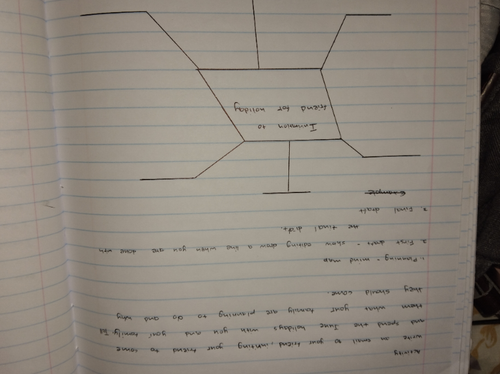 Activity
write an email to your friend, inviting your friend to come
and spend the June holidays with you and your family. Tell
them what your family are planning to do and why
they should come.
1. Planning - mind map
2. First draft - show editing draw a line when you are done with
the final draft.
3. Final draft
Example
Invitation to
friend for holiday